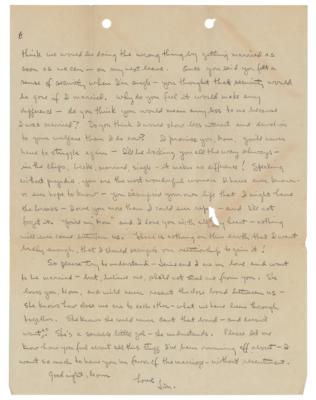 6
think we would be doing the wrong thing by getting married as
soon as we can - on my next leave. Once you said you felt a
sense of security when I'm single - you thought that security would
be gone if I married. Why do you feel it would make any
difference - do you think you would mean any less to me because
I was married? Do you think I would show less interest and devotion
to your welfare than I do now? I promise you, Mom, you'll never
have to struggle again - I'll be backing you all the way always -
in the chips, broke, married, single - it makes no difference! Speaking
without prejudice, you are the most wonderful woman I have ever known
or ever hope to know - you sacrificed your own life that I might have
the breaks - I owe you more than I could ever repay - and I'll not
forget it. You're my Mom and I love you with all my heart - nothing
will ever come between us. There is nothing on this earth that I want
badly enough, that I should sacrifice our relationship to gain it!
So please try to understand - Janie and I are in love and want
to be married - but, believe me, she'll not steal me from you. She
loves you, Mom, and will never resent the close bond between us -
she knows how close we are to each other - what we have been through
together. She knows she could never break that bond - and doesn't
want to. She's a sensible little girl - she understands. Please let me
know how you feel about all this stuff I've been running off about - I
want so much to have you in favor of the marriage - without resentment.
Good night, Mom
Love
Jim.